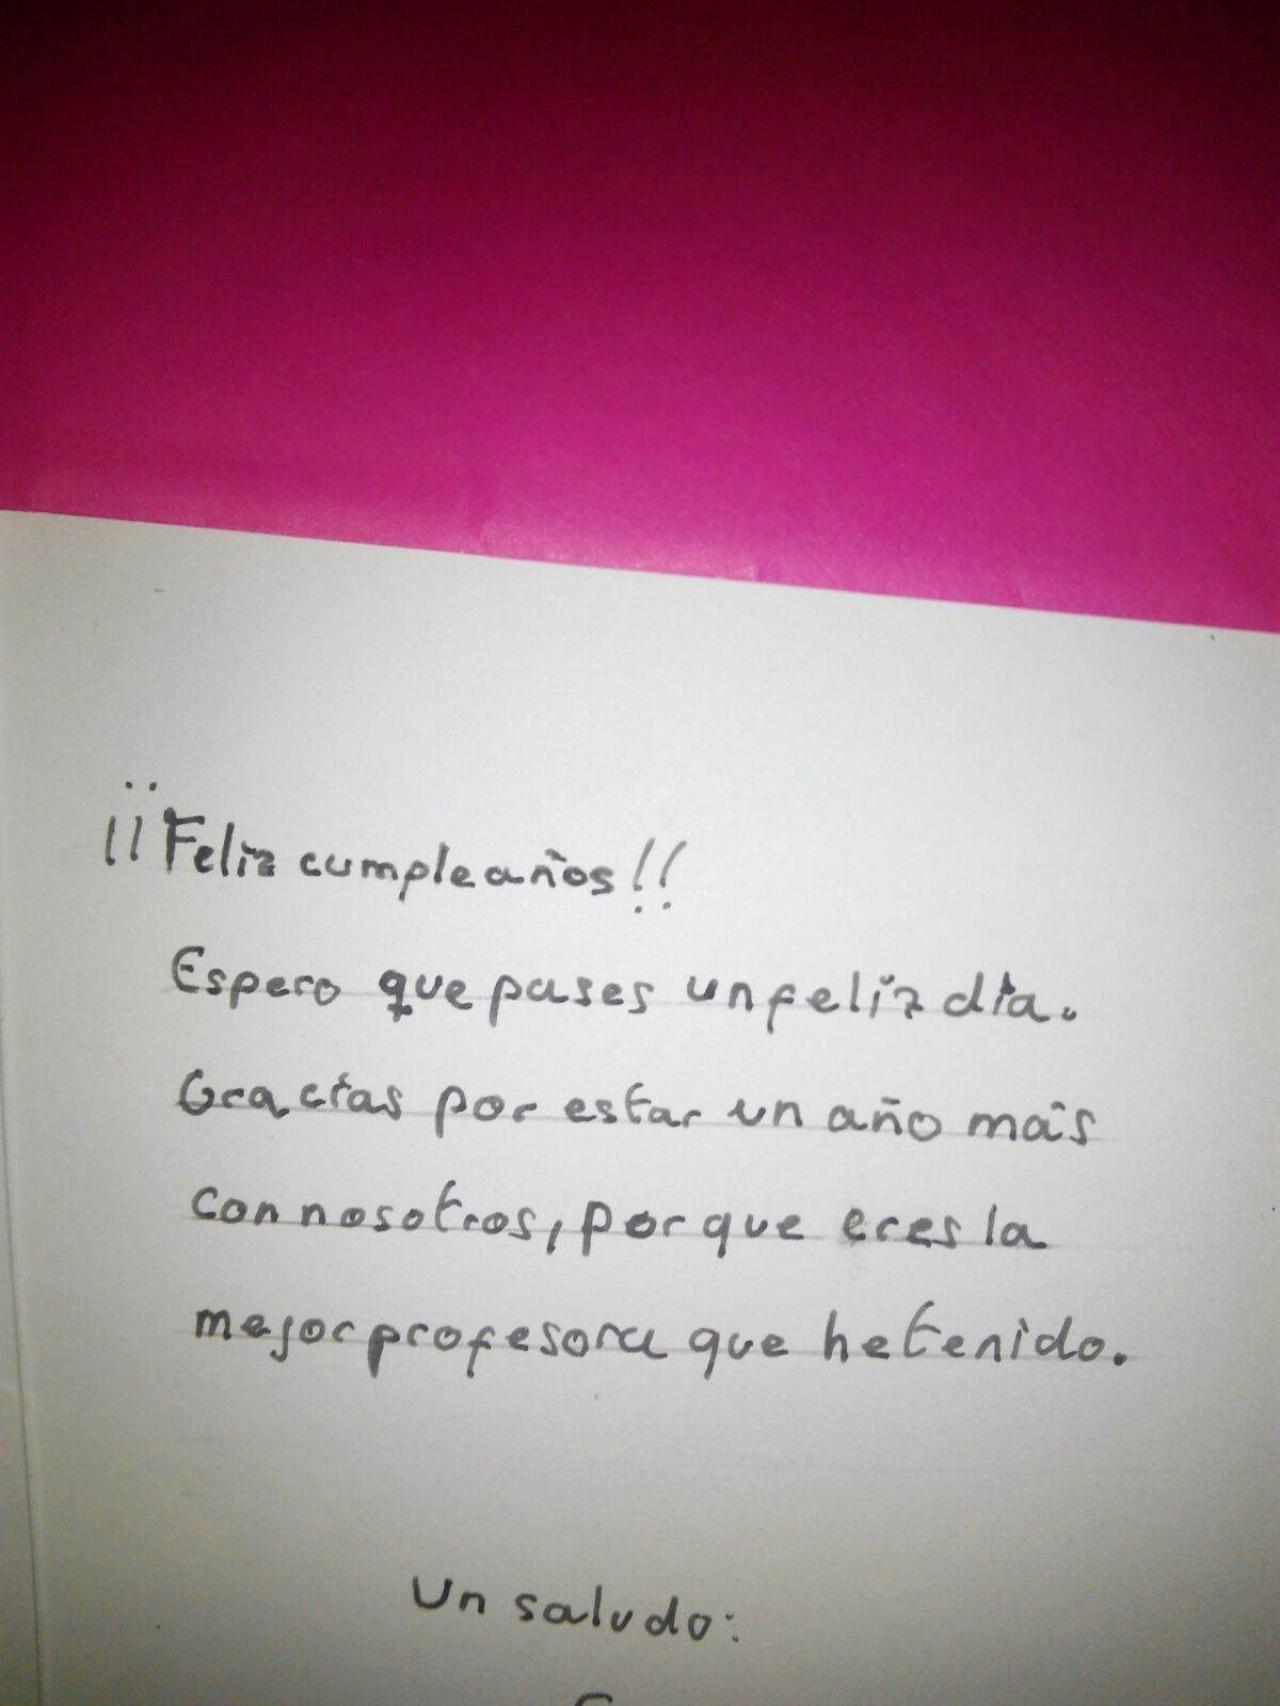 ¡¡Feliz cumpleaños!!
Espero que pases un feliz día.
Gracias por estar un año más
con nosotros, porque eres la
mejor profesora que he tenido.
Un saludo: